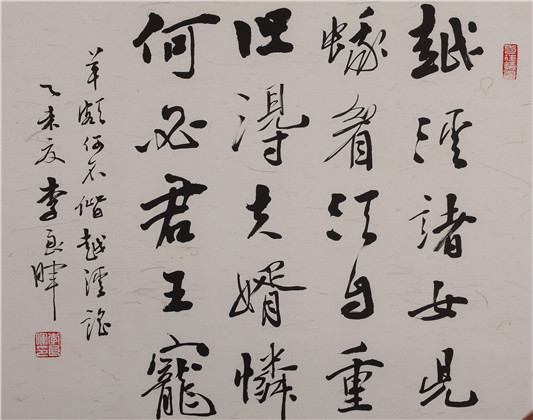 越溪諸女兒
蛾眉須自重
但得夫婿憐
何必君王寵
何不偕越溪謠
乙未夏李暉